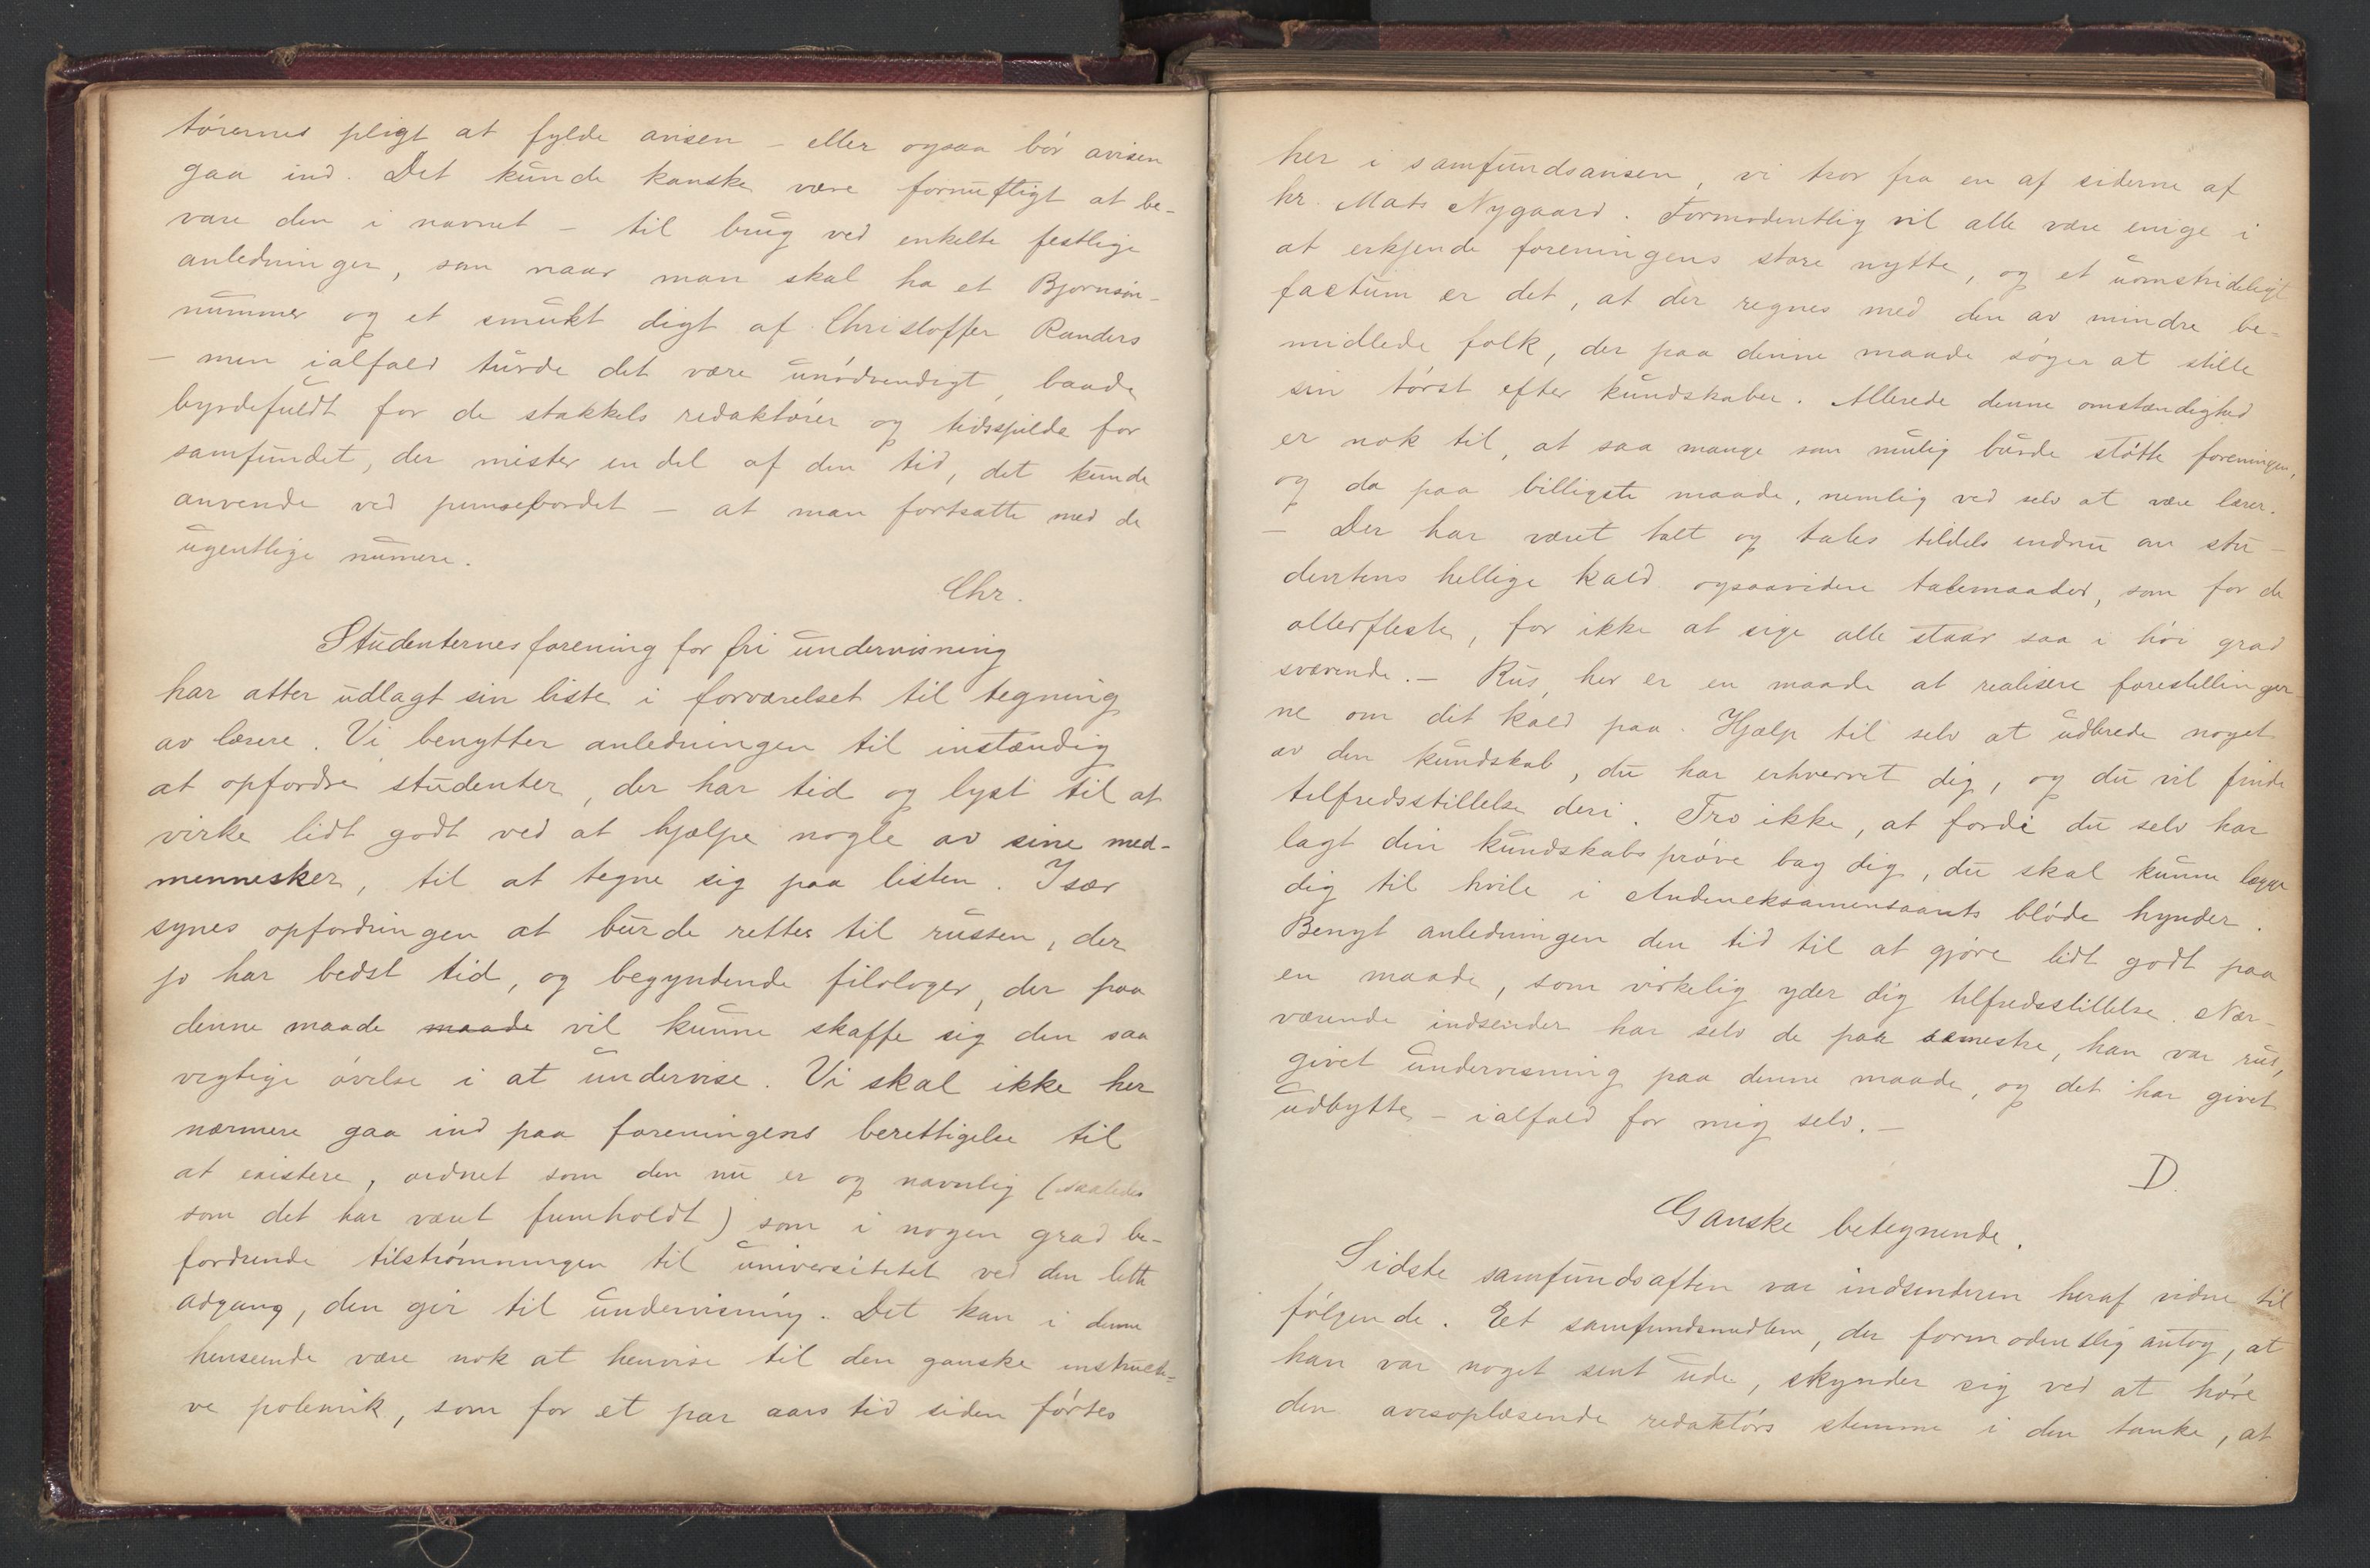 tørernes pligt at fylde avisen – eller ogsaa bør avisen
gaa ind. Det kunde kanske være fornuftigt at be-
vare den i navnet – til brug ved enkelte festlige
anledninger, som naar man skal ha et Bjørnson-
nummer og et smukt digt af Christoffer Randers
– men ialfald turde det være unødvendigt, baade
byrdefuldt for de stakkels redaktører og tidsspilde for
samfundet, der mister en del af den tid, det kunde
anvende ved punsebordet – at man fortsatte med de
ugentlige numere.
Chr.
Studenternes forening for fri undervisning
har atter udlagt sin liste i forværelset til tegning
av lærere. Vi benytter anledningen til instændig
at opfordre studenter, der har tid og lyst til at
virke lidt godt ved at hjælpe nogle av sine med-
mennesker, til at tegne sig paa listen. Især
synes opfordringen at burde rettes til russen, der
jo har bedst tid, og begyndende filologer, der paa
denne maade maade vil kunne skaffe sig den saa
vigtige øvelse i at undervise. Vi skal ikke her
nærmere gaa ind paa foreningens berettigelse til
at existere, ordnet som den nu er og navnlig (saaledes
som det har været fremholdt) som i nogen grad be-
fordrende tilstrømningen til universitetet ved den lette
adgang, den gir til undervisning. Det kan i denne
henseende være nok at henvise til den ganske instructi-
ve polemik, som for et par aars tid siden førtes
her i samfundsavisen, vi tror fra en af siderne af
hr. Mats Nygaard. Formodentlig vil alle være enige i
at erkjende foreningens store nytte, og et uomstrideligt
factum er det, at der regnes med den av mindre be-
midlede folk, der paa denne maade søger at stille
sin tørst efter kundskaber. Allerede denne omstændighed
er nok til, at saa mange som mulig burde støtte foreningen,
og da paa billigste maade, nemlig ved selv at være lærer.
– Der har været talt og tales tildels endnu om stu-
dentens hellige kald ogsaavidere talemaader, som for de
allerfleste, for ikke at sige alle staar saa i høi grad
svævende. – Rus, her er en maade at realisere forestillinger-
ne om dit kald paa. Hjælp til selv at udbrede noget
av den kundskab, du har erhvervet dig, og du vil finde
tilfredsstillelse deri. Tro ikke, at fordi du selv har
lagt din kundskabs prøve bag dig, du skal kunne lægge
dig til hvile i Andeneksamensaarets bløde hynder.
Benyt anledningen den tid til at gjøre lidt godt paa
en maade, som virkelig yder dig tilfredsstillelse. Nær-
værende indsender har selv de par semestre, han var rus,
givet undervisning paa denne maade, og det har givet
udbytte – ialfald for mig selv. –
D.
Ganske betegnende.
Sidste samfundsaften var indsenderen heraf vidne til
følgende. Et samfundsmedlem, der formodentlig antog, at
han var noget sent ude, skynder sig ved at høre
den avisoplæsende redaktørs stemme i den tanke, at